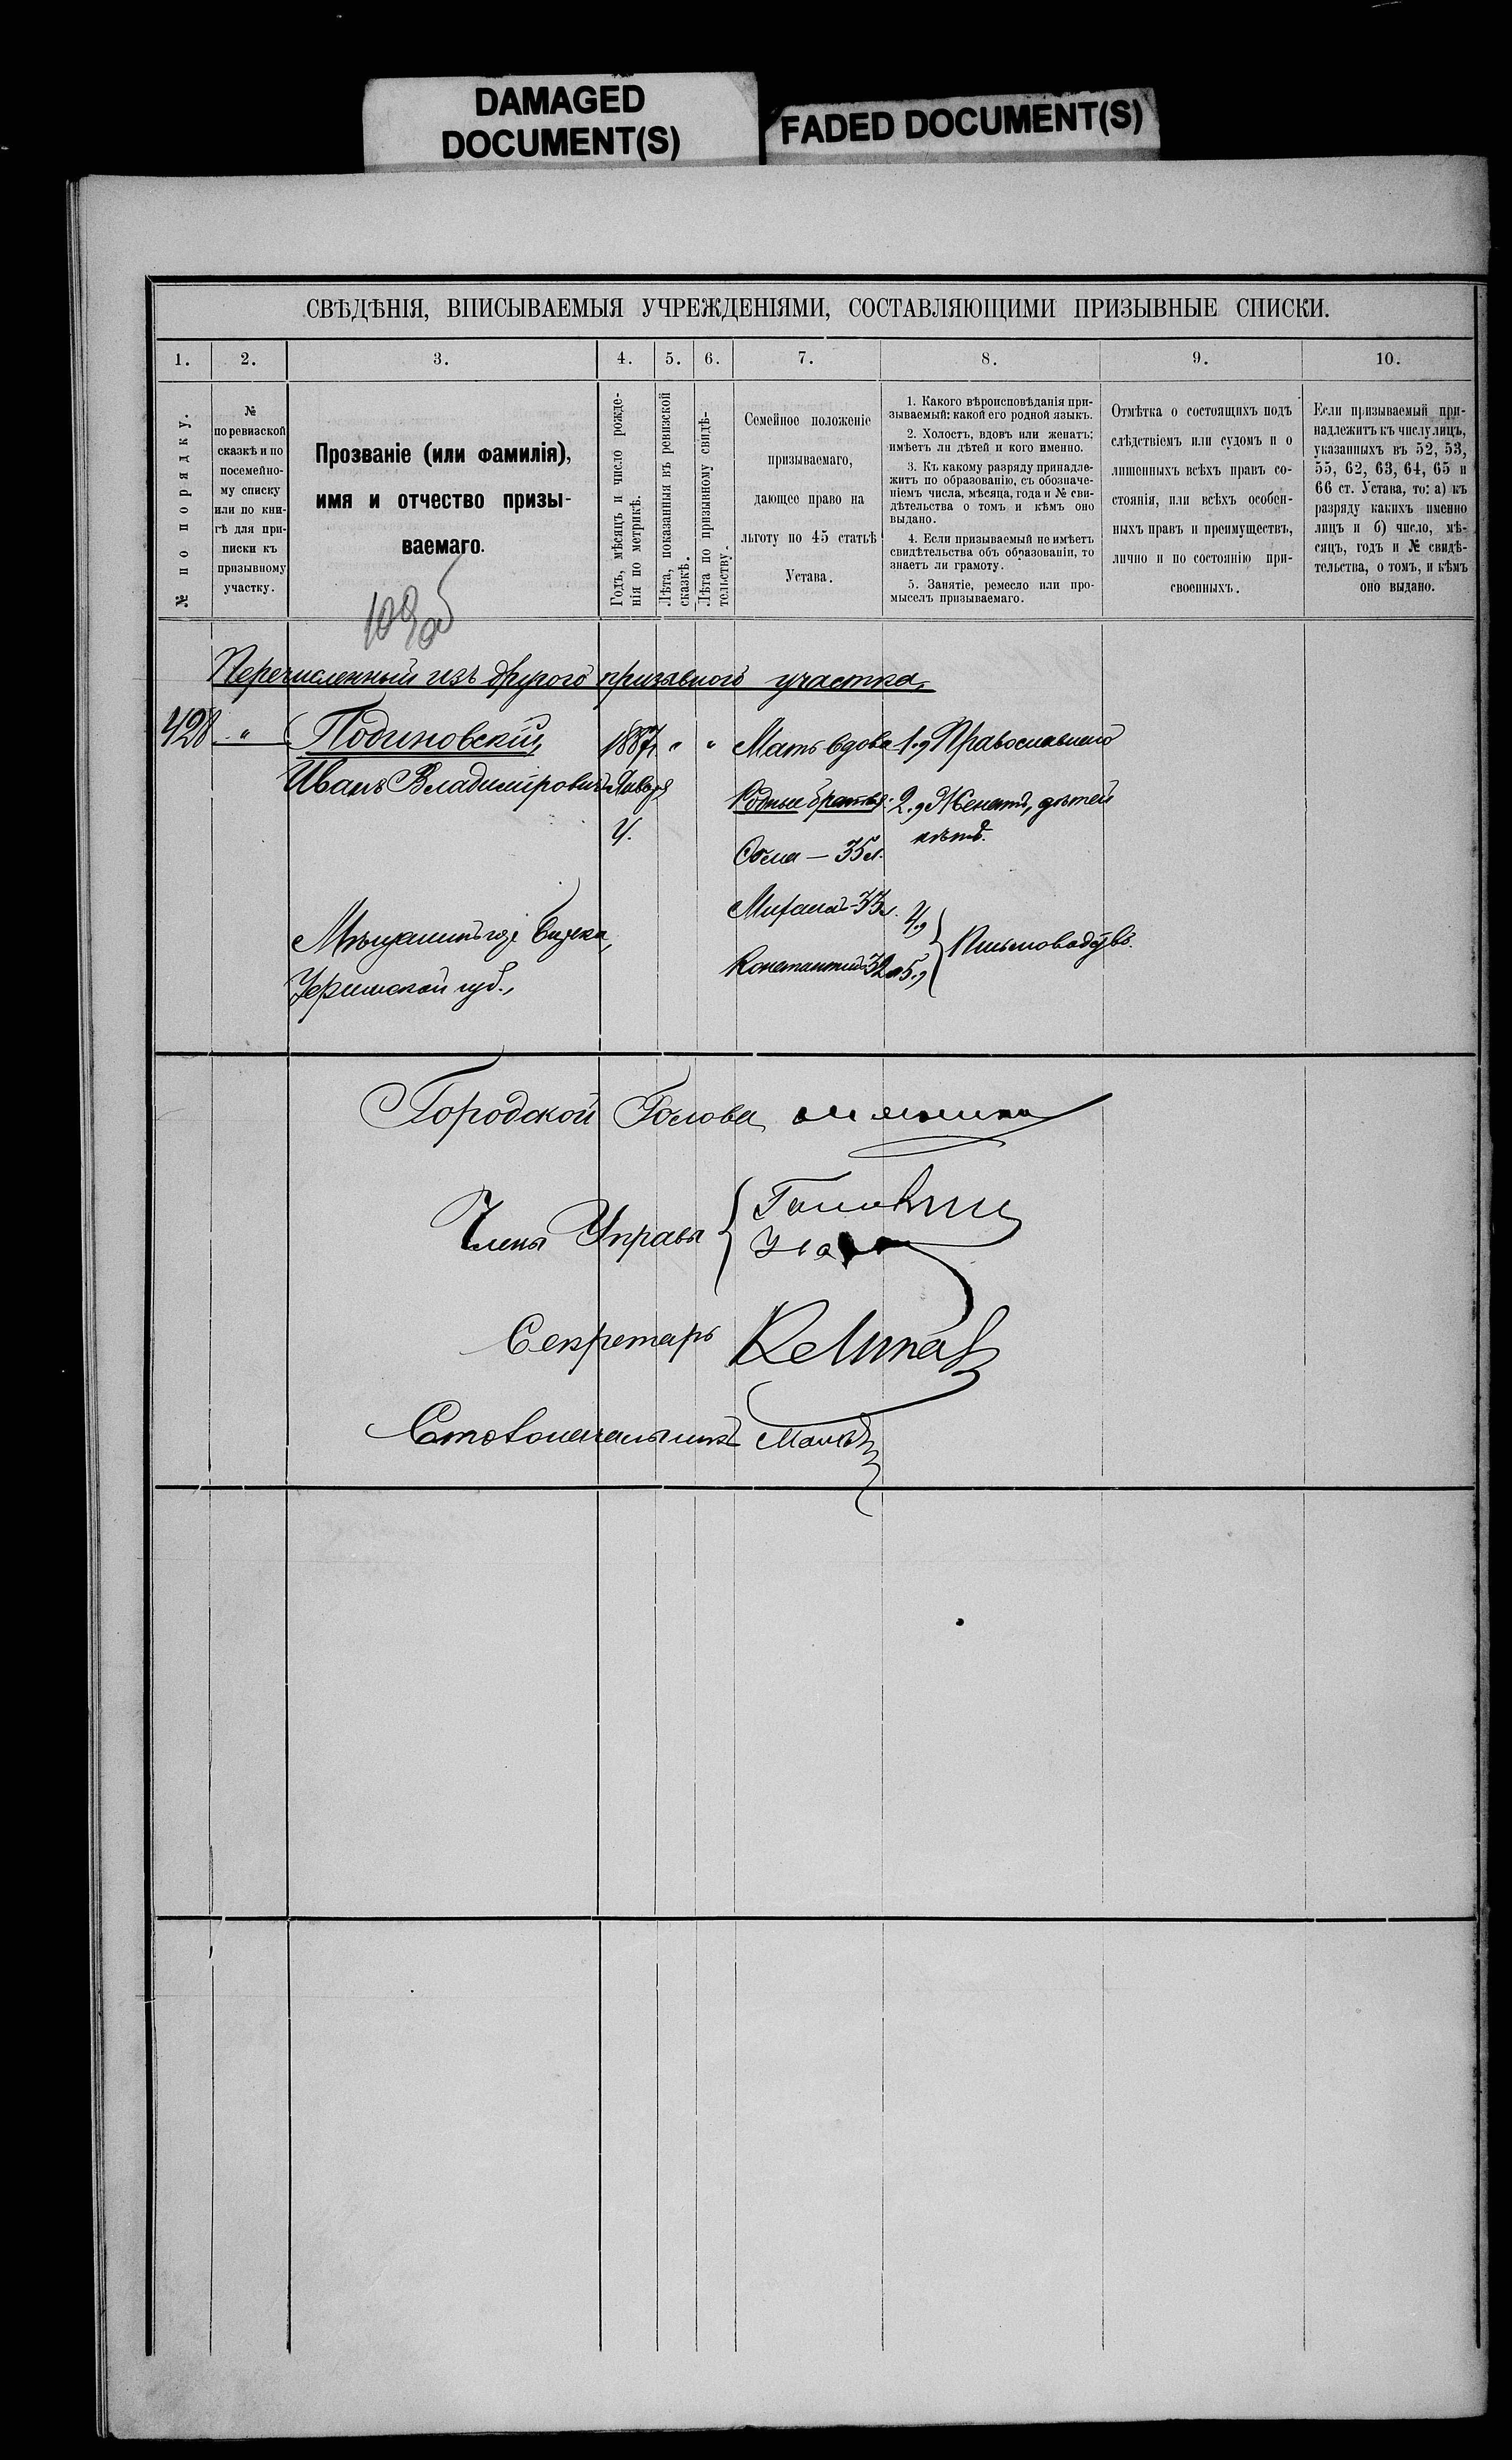 DAMAGED
DOCUMENT(S)
FADED DOCUMENT(S)
СВѢДѢНІЯ, ВПИСЫВАЕМЫЯ УЧРЕЖДЕНІЯМИ, СОСТАВЛЯЮЩИМИ ПРИЗЫВНЫЕ СПИСКИ.
1. 2. 3. 4. 5. 6. 7. 8. 9. 10.
№ по порядку.
№
по ревизской
сказкѣ и по
посемейно-
му списку
или по кни-
гѣ для при-
писки къ
призывному
участку.
Прозваніе (или фамилія),
имя и отчество призы-
ваемаго.
Годъ, мѣсяцъ и число рожде-
нія по метрикѣ.
Лѣта, показанныя въ ревизской
сказкѣ.
Лѣта по призывному свидѣ-
тельству.
Семейное положеніе
призываемаго,
дающее право на
льготу по 45 статьѣ
Устава.
1. Какого вѣроисповѣданія при-
зываемый: какой его родной языкъ.
2. Холостъ, вдовъ или женатъ;
имѣетъ ли дѣтей и кого именно.
3. Къ какому разряду принадле-
житъ по образованію, съ обозначе-
ніемъ числа, мѣсяца, года и № сви-
дѣтельства о томъ и кѣмъ оно
выдано.
4. Если призываемый не имѣетъ
свидѣтельства объ образованіи, то
знаетъ ли грамоту.
5. Занятіе, ремесло или про-
мыселъ призываемаго.
Отмѣтка о состоящихъ подъ
слѣдствіемъ или судомъ и о
лишенныхъ всѣхъ правъ со-
стоянія, или всѣхъ особен-
ныхъ правъ и преимуществъ,
лично и по состоянію при-
своенныхъ.
Если призываемый при-
надлежитъ къ числу лицъ,
указанныхъ въ 52, 53,
55, 62, 63, 64, 65 и
66 ст. Устава, то: а) къ
разряду какихъ именно
лицъ и б) число, мѣ-
сяцъ, годъ и № свидѣ-
тельства, о томъ, и кѣмъ
оно выдано.
Перечисленный изъ другого призывного участка.
428 " Подиновскій, 1887г. " " Мать вдова 1., Православнаго
Иванъ Владиміровичъ Января
4.
Родные братья: 2., Женатъ, дѣтей
нѣтъ.
35 л.
Михаилъ 33 л. 4.,
Мѣщанинъ гор. Бирска,
Константинъ 32 л. 5.,
Уфимской губ.,
Городской Голова
Члены Управы
Секретарь
Столоначальникъ